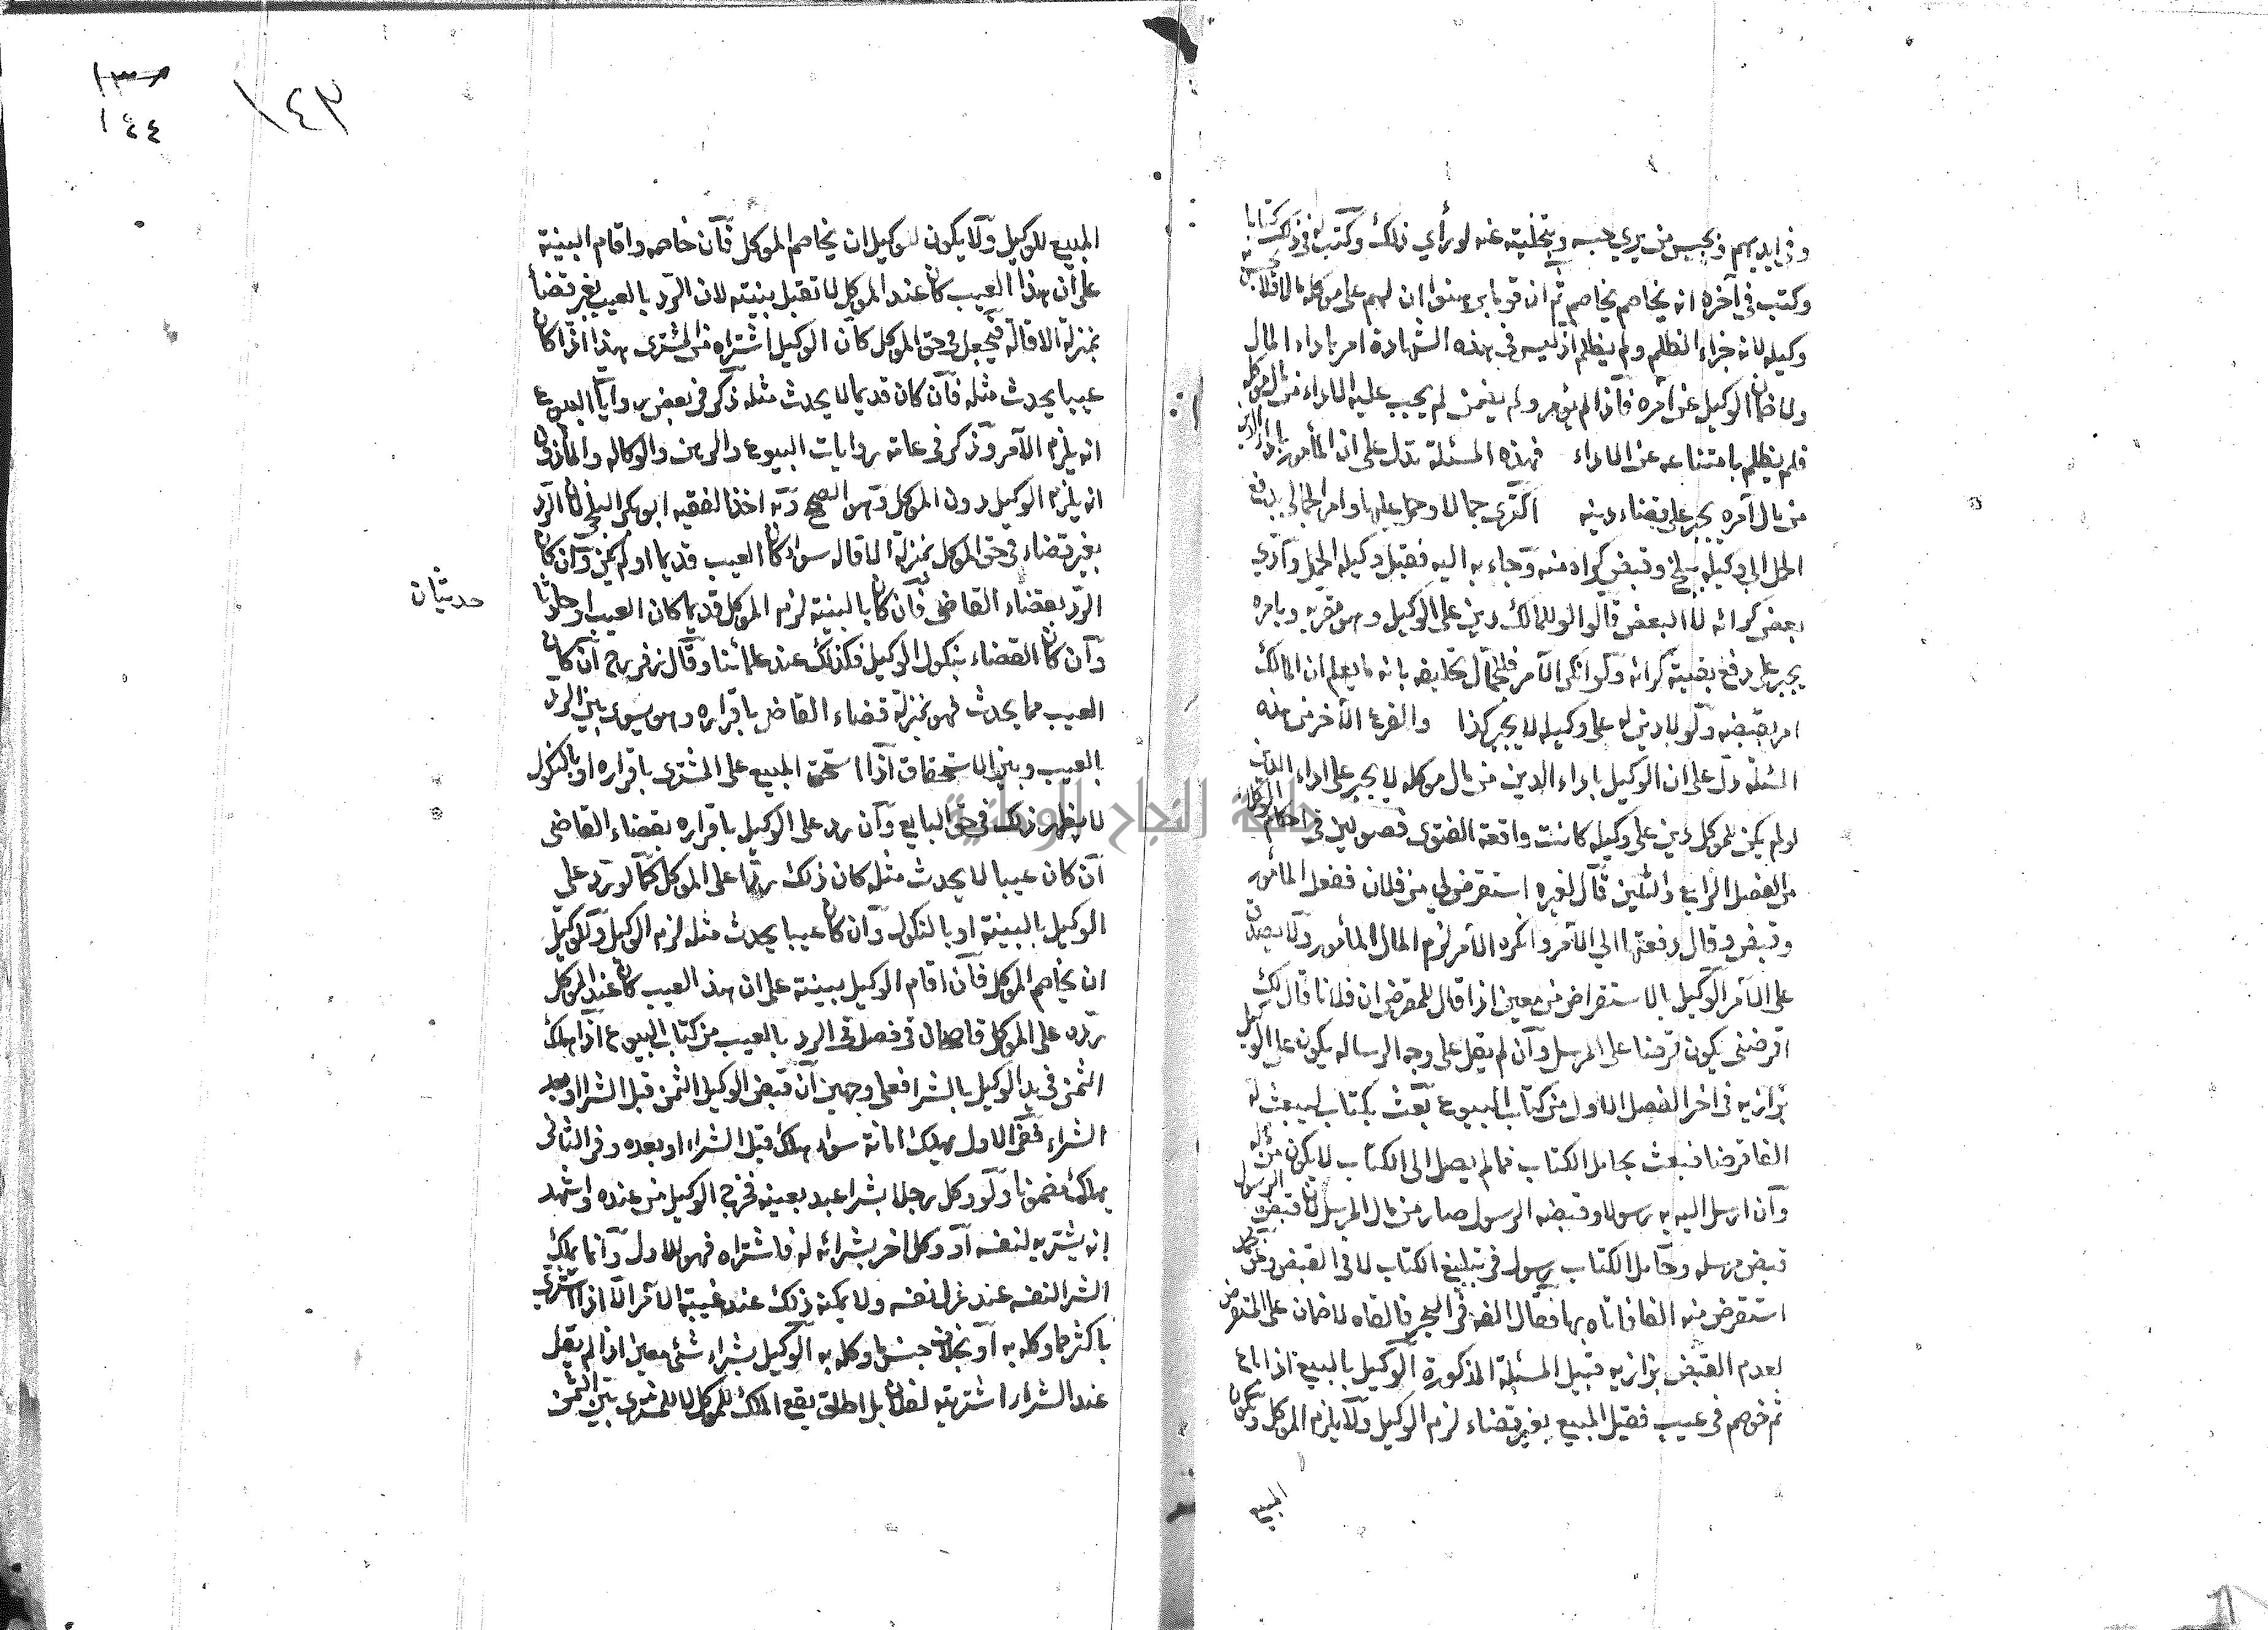 وفى ايديهم وبحبس من يرى حبسه وبتخليته عنه لو رأى ذلك وكتب له فى ذلك كتابا
وكتب فى آخره انه يخاصم يخاصم ثم ان قوما برهنوا ان لهم على موكله مالا فلا يحبس به
وكيله لانه جزاء الظلم ولم يظلم اذ ليس فى هذه الشهادة امر باداء المال
ولا ضمان الوكيل عن آمره فاذا لم يؤمر ولم يضمن لم يجب عليه الاداء من مال موكله
فلم يظلم بامتناعه عن الاداء فهذه المسئلة تدل على ان المأمور باداء الدين
من مال آمره يجبر على قضاء دينه اكترى جمالا وحمل عليها وامر الجمال بدفع
الحمل الى وكيله ببلخ وقبض كراه منه وجاء به اليه فقبل وكيله الحمل وادى
بعض كرائه لا البعض قالوا لو للمالك دين على الوكيل وهو مقر به وبامره
يجبر على دفع بقية كرائه ولو انكر الآمر فللجمال تحليفه بانه ما يعلم ان المالك
امر بقبضه ولو لا دين له على وكيله لا يجبر كذا والفرع الآخر من هذه
المسئلة دل على ان الوكيل باداء الدين من مال موكله لا يجبر على اداء الدين
لو لم يكن للموكل دين على وكيله كانت واقعة الفتوى فصولين فى احكام الوكلاء
من الفصل الرابع والثلثين قال لغيره استقرض لى من فلان ففعل المأمور
وقبض وقال دفعتها الى الآمر وانكره الآمر لزم المال المأمور ولا يصدق
على الآمر الوكيل بالاستقراض من معين اذا قال للمقرض ان فلانا قال لك
اقرضنى يكون قرضا على المرسل وان لم يقل على وجه الرسالة يكون على الوكيل
بزازيه فى اخر الفصل الاول من كتاب البيوع بعث بكتاب ليبعث له
الفا قرضا فبعث بحامل الكتاب فما لم يصل الى الكتاب لا يكون من ماله
وان ارسل اليه به رسولا وقبضه الرسول صار من مال المرسل لان قبض الرسول
قبض مرسله وحامل الكتاب رسول فى تبليغ الكتاب لا فى القبض
استقرض منه الفا فاتاه بها فقال القه فى البحر فالقاه لا ضمان على المستقرض
لعدم القبض بزازيه قبيل المسئلة المذكورة الوكيل بالبيع اذا باع
ثم خوصم فى عيب فقبل المبيع بغير قضاء لزم الوكيل ولا يلزم الموكل ويكون
المبيع
١٤٣
١٤٤
المبيع للوكيل ولا يكون للوكيل ان يخاصم الموكل فان خاصمه واقام البينة
على ان هذا العيب كان عند الموكل لا تقبل بينته لان الرد بالعيب بغير قضاء
بمنزلة الاقالة فيجعل فى حق الموكل كان الوكيل اشتراه من المشترى هذا اذا كان
عيبا يحدث مثله فان كان قديما لا يحدث مثله ذكر فى بعض روايات البيوع
انه يلزم الآمر وذكر فى عامة روايات البيوع والرهن والوكاله والمأذون
انه يلزم الوكيل دون الموكل وهو الصحيح وبه اخذ الفقيه ابو بكر البلخى لان الرد
بغير قضاء فى حق الموكل بمنزلة الاقاله سواء كان العيب قديما او لم يكن وان كان
الرد بقضاء القاضى فان كان بالبينة لزم الموكل قديما كان العيب او حادثا
حدثيان
وان كان القضاء بنكول الوكيل فكذلك عند علمائنا وقال زفر رح ان كان
العيب مما يحدث فهو بمنزلة قضاء القاضى باقراره وهو يسوى بين الرد
بالعيب وبين الاستحقاق اذا استحق المبيع على المشترى باقراره او بالنكول
لا يظهر ذلك فى حق البايع وان رد على الوكيل باقراره بقضاء القاضى
ان كان عيبا لا يحدث مثله كان ذلك ردا على الموكل كما لو رد على
الوكيل بالبينة او بالنكول وان كان عيبا يحدث مثله لزم الوكيل وللوكيل
ان يخاصم الموكل فان اقام الوكيل بينة على ان هذا العيب كان عند الموكل
رده على الموكل قاضيخان فى فصل فى الرد بالعيب من كتاب البيوع اذا هلك
الثمن فى يد الوكيل بالشرا فعلى وجهين ان قبض الوكيل الثمن قبل الشرا او بعد
الشراء ففى الاول يهلك امانة سواء هلك قبل الشراء او بعده وفى الثانى
يهلك مضمونا ولو وكل رجلا بشرا عبد بعينه فخرج الوكيل من عنده واشهد
انه يشتريه لنفسه او وكل اخر بشرائه له فاشتراه فهو للاول وانما يملك
الشرا لنفسه عند عزل نفسه ولا يمكنه ذلك عند غيبة الآمر الا اذا اشترى
باكثر مما وكله به او بخلاف جنس ما وكله به الوكيل بشراء شئ معين اذا لم يقل
عند الشراء اشتريته لفلان بل اطلق يقع الملك للموكل لا للمشترى بين الثمن
جامعة النجاح الوطنية